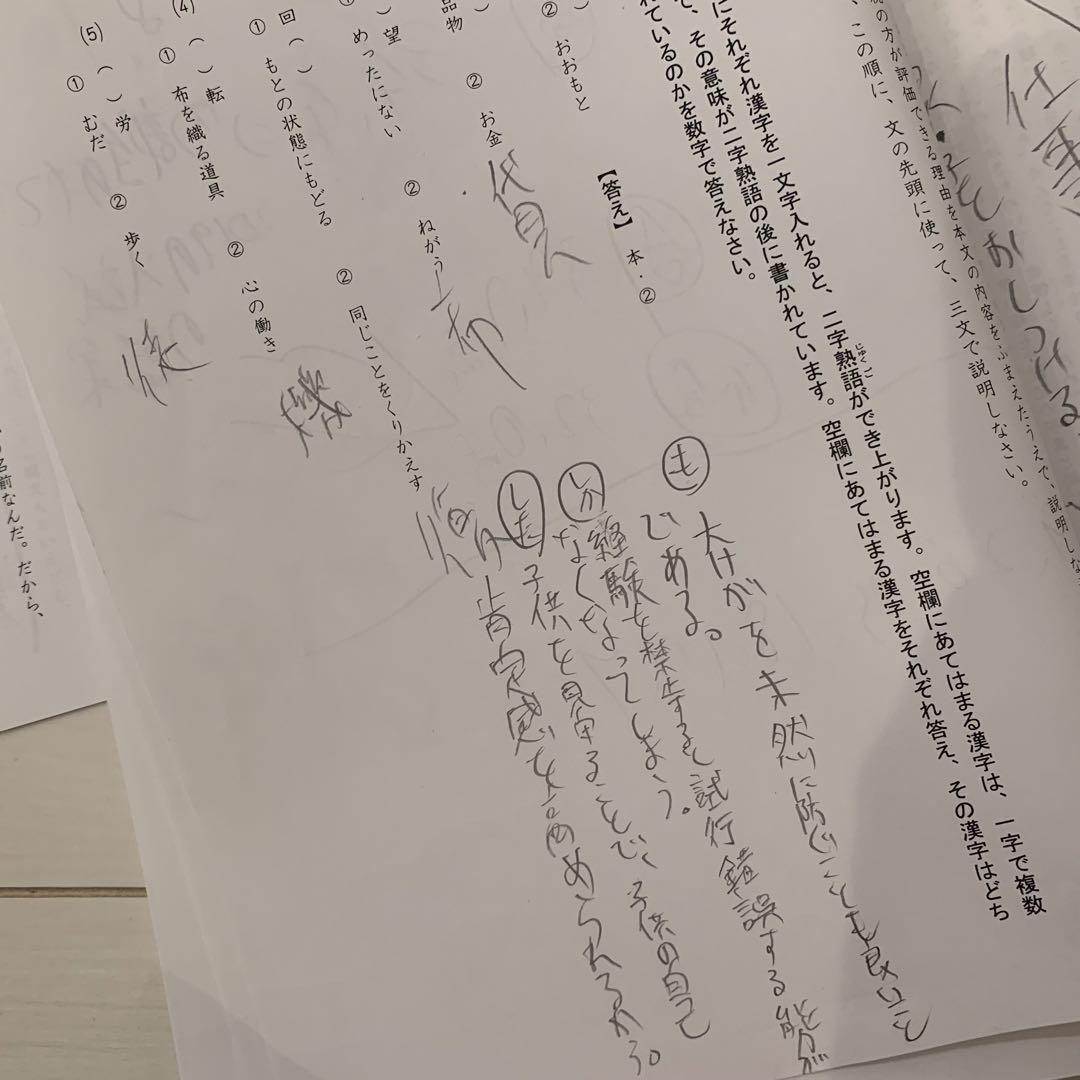 仕事
をおしつける
の方が評価できる理由を本文の内容をふまえたうえで、説明しな
、この順に、文の先頭に使って、三文で説明しなさい。
にそれぞれ漢字を一文字入れると、二字熟語ができ上がります。空欄にあてはまる漢字は、一字で複数
じゅくご
、その意味が二字熟語の後に書かれています。空欄にあてはまる漢字をそれぞれ答え、その漢字はどち
れているのかを数字で答えなさい。
② おおもと 【答え】 本・②
品物 ② お金 貨
( )望
めったにない ② ねがう 希
回( )
① もとの状態にもどる ② 同じことをくりかえす 復
(4) ( )転
① 布を織る道具 ② 心の働き 機
(5) ( )労
① むだ ② 歩く 徒
も 大けがを未然に防ぐことも良いこと
である。
しか 経験を禁止すると試行錯誤する能力が
なくなってしまう。
しも 子供を見守ることで、子供の自己
肯定感を高められるから。
名前なんだ。だから、